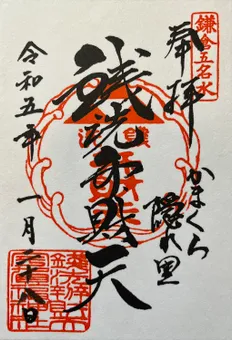 鎌倉五名水
奉拝
かまくら
隠れ里
銭洗弁財天
令和五年
一月二十八日